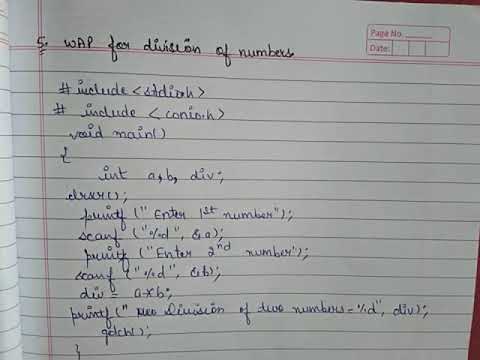 Page No.
Date:
5. WAP for division of numbers
# include <stdio.h>
# include <conio.h>
void main()
{
int a, b, div;
clrscr();
printf ("Enter 1st number");
scanf ("%d", &a);
printf ("Enter 2nd number");
scanf ("%d", &b);
div = a*b;
printf (" Division of two numbers=%d", div);
getch();
}